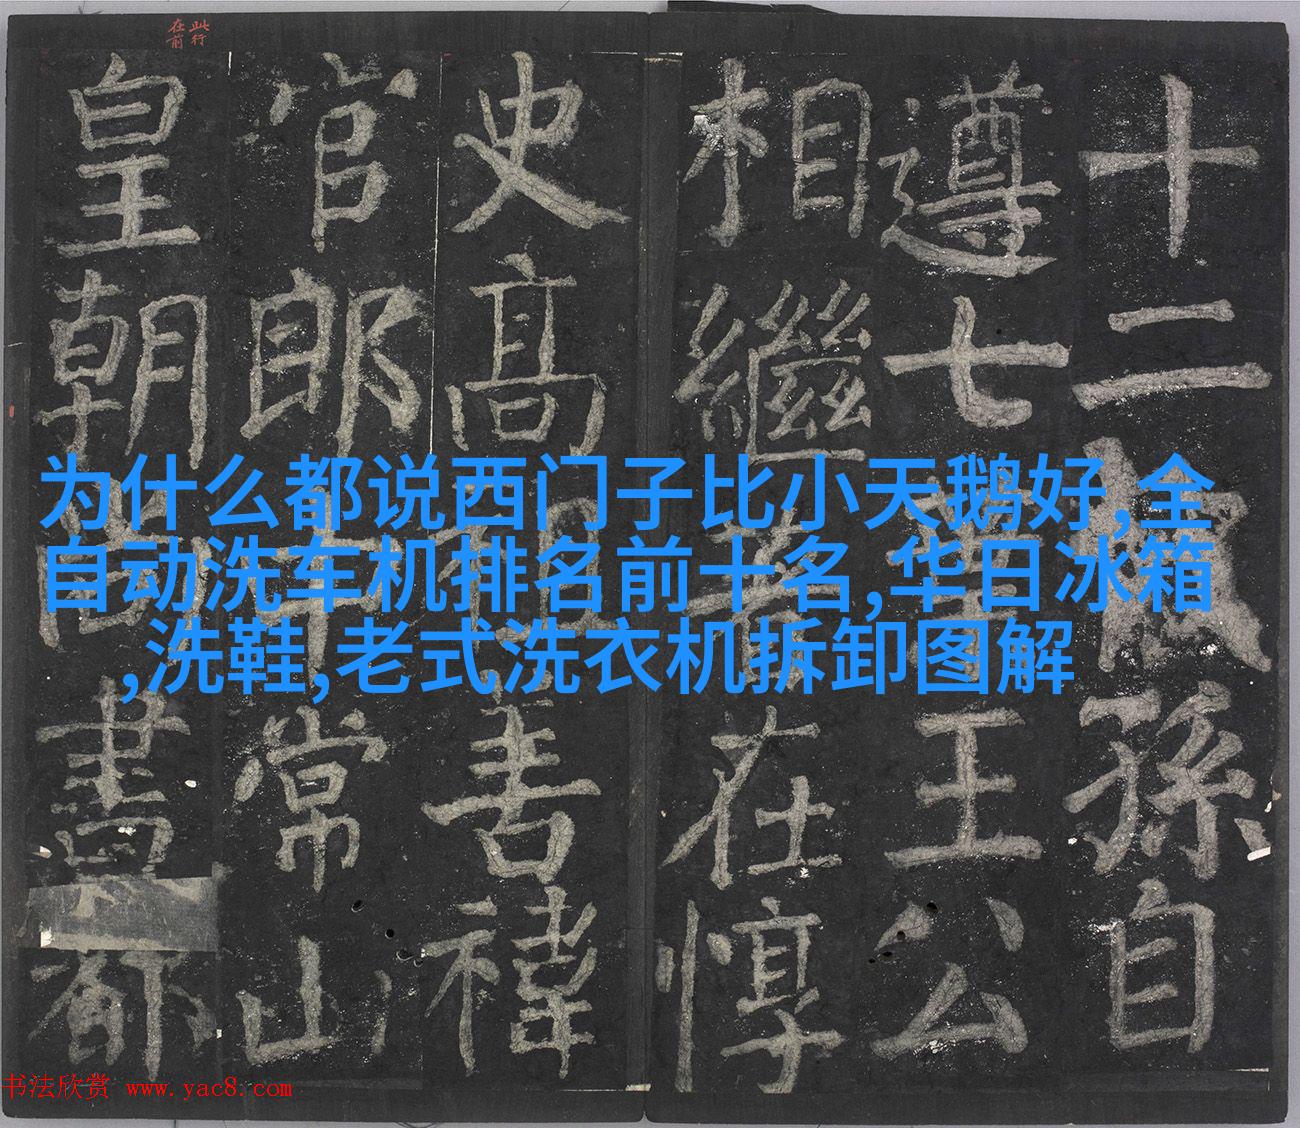 此行
在前
十二叔孫自
遵七王公
相繼在惇
史高祖善禕
官郎中常山
皇朝尚書都
为什么都说西门子比小天鹅好,全
自动洗车机排名前十名,华日冰箱
,洗鞋,老式洗衣机拆卸图解
书法欣赏 www.yac8.com